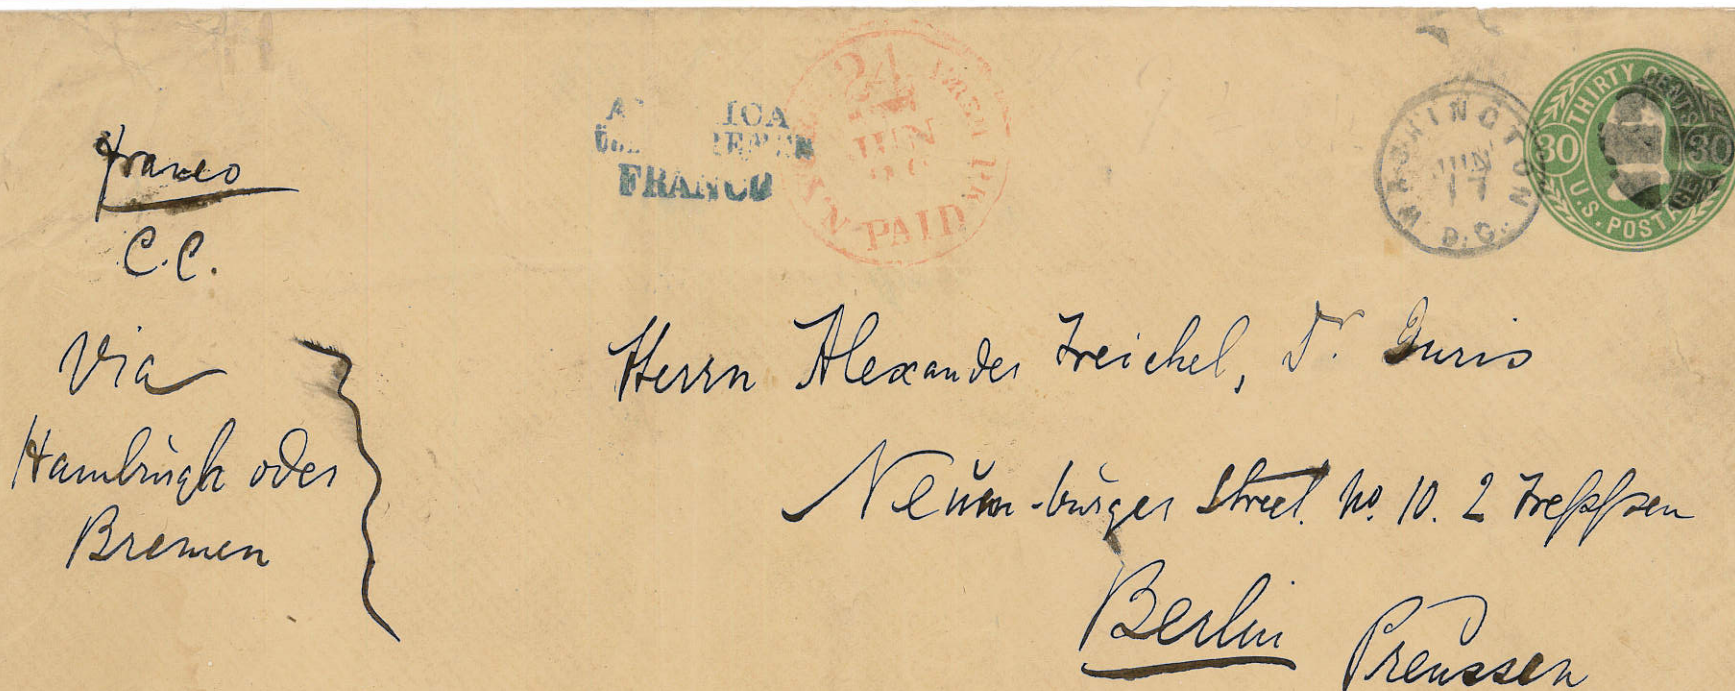 franco
C.C.
Via
Hambúrgh oder
Bremen
FRANCO
24
JUN
PAID
WASHINGTON
JUN
17
D.C.
THIRTY
30 30
U.S. POSTA
Herrn Alexander Treichel, Dr. Juris
burger Street. No. 10. 2 Treppen
Berlin Preussen